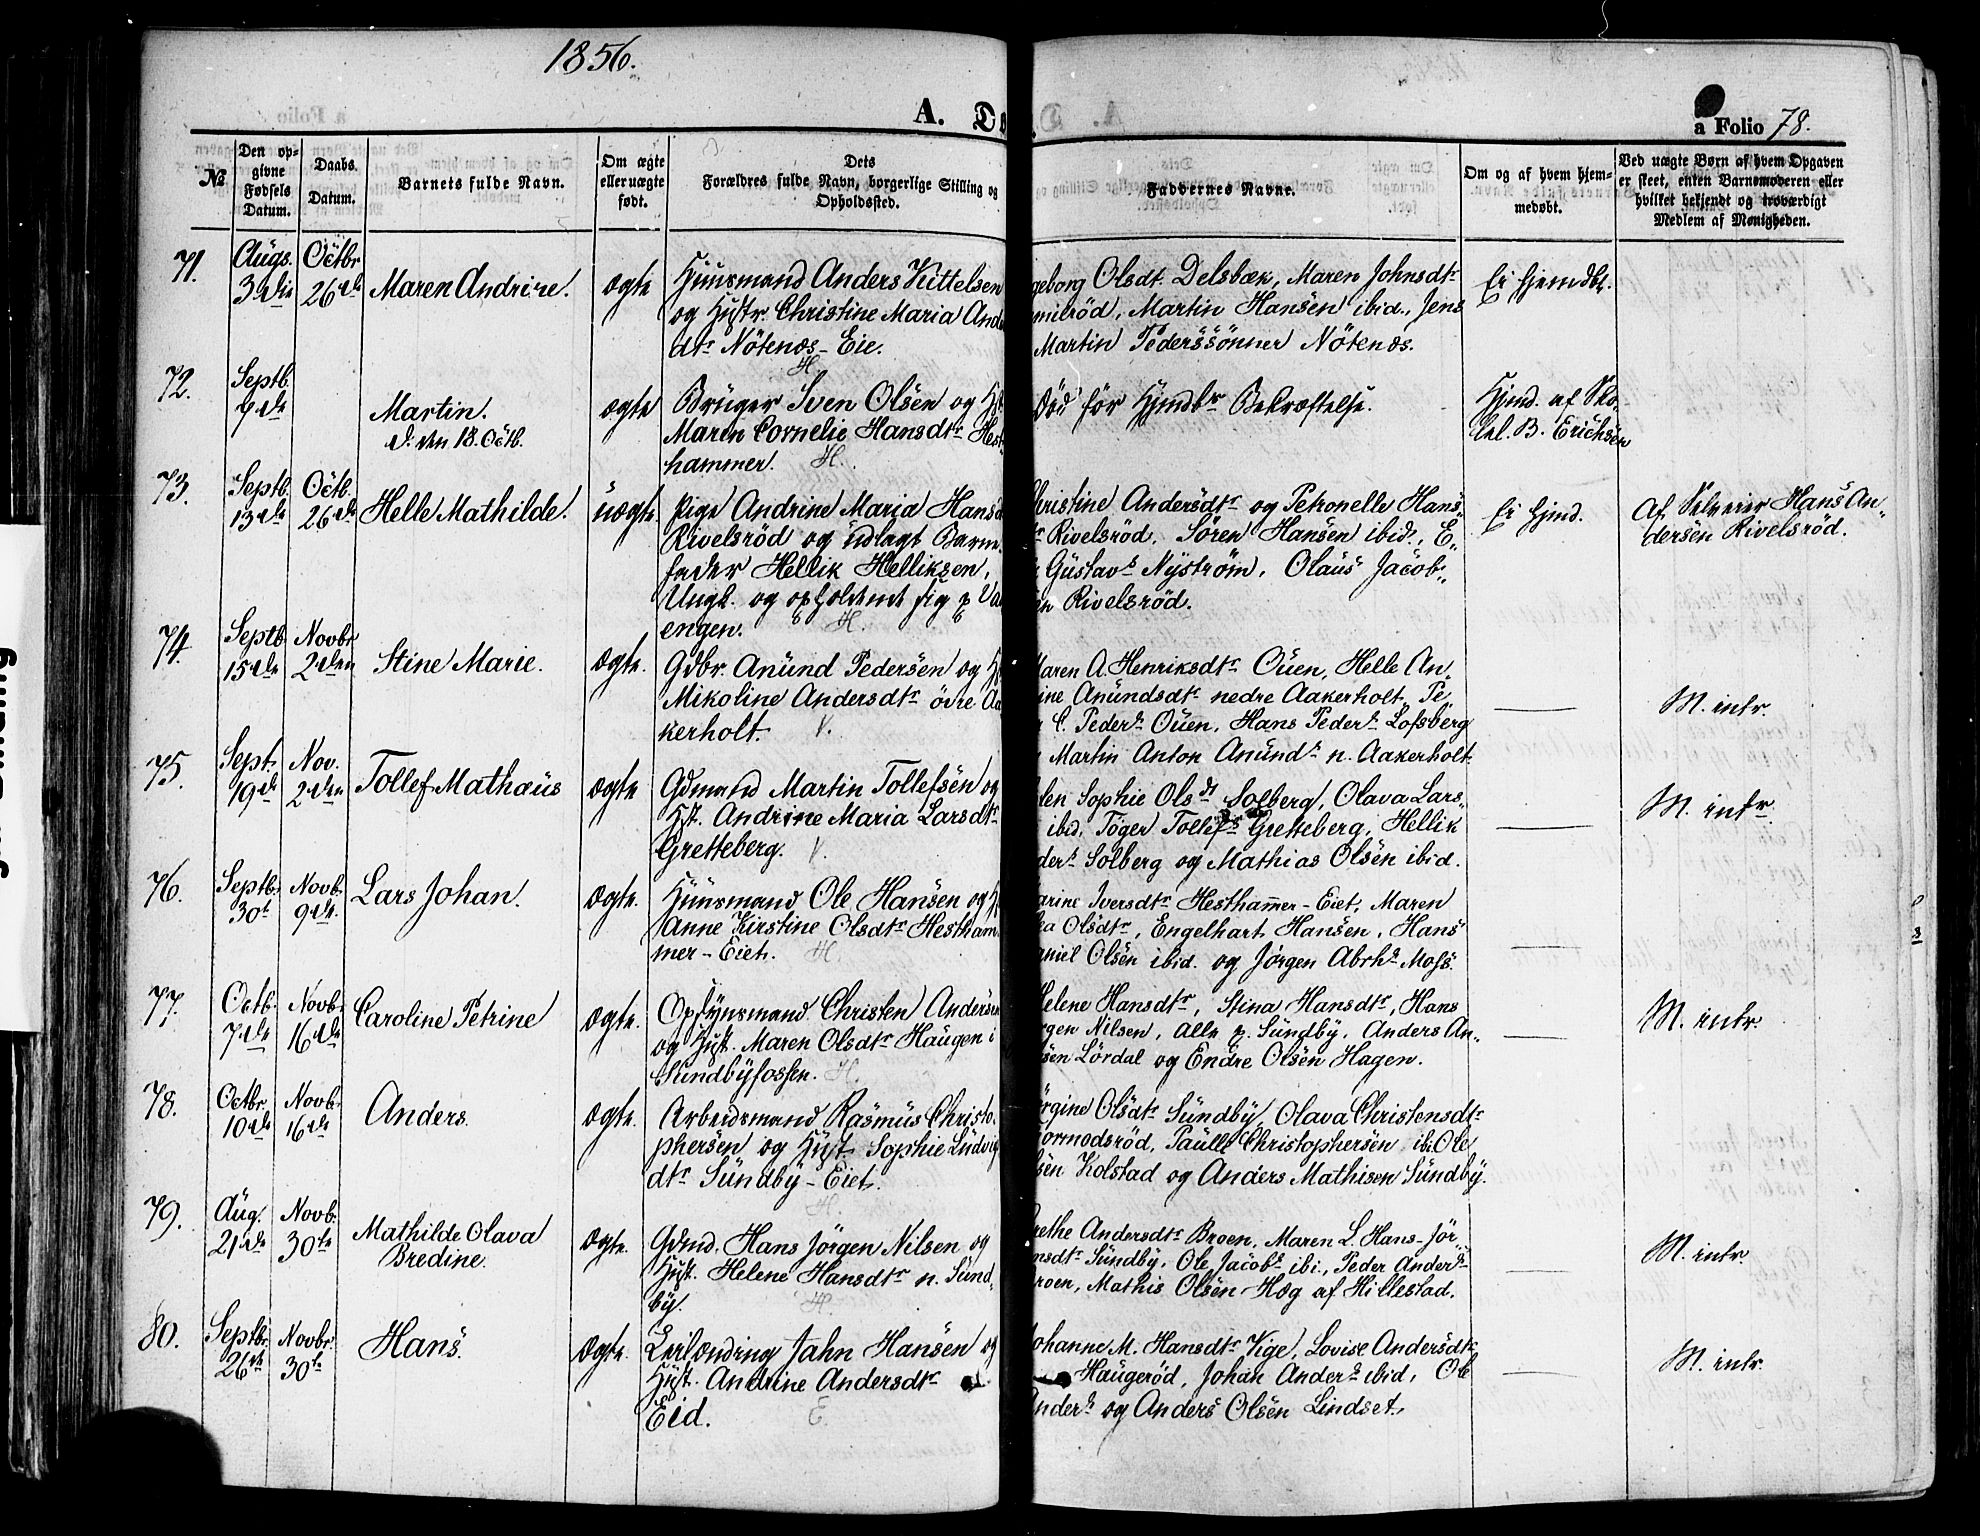 1856.
A. D
a Folio 78.
№
Den op-
givne
Fødsels
Datum.
Daabs
Datum.
Barnets fulde Navn.
Om ægte
eller uægte
født.
Dets
Forældres fulde Navn, borgerlige Stilling og
Opholdssted.
Faddernes Navne.
Om og af hvem hjem-
medøbt.
Ved uægte Børn af hvem Opgaven
er skeet, enten Barnemoderen eller
hvilket bekjendt og troværdigt
Medlem af Menigheden.
71.
Augs.
3die
Octbr
26de
Maren Andrine.
ægte
Huusmand Anders Kittelsen
og Hustr. Christine Maria And
dtr Nötenæs-Eie.
H
geborg Olsdt. Delsbæk, Maren Johnsdtr
milröd, Martin Hansen ibid., Jens
Martin Pederssönner Nötenæs.
Ei hjemdbt.
72.
Septb.
Martin.
d. den 18. Octb.
ægte
Bruger Iven Olsen og H
Maren Cornelie Hansdtr Hest
hammer. H.
Död för Hjmdbr Bekræftelse.
Hjmd. af Sko-
lel. B. Erichsen
73.
Septb.
13de
Octb.
26de
Helle Mathilde.
uægte.
Pige Andrine Maria Hansd
Rivelsröd og udlagt Barne-
fader Hellik Helliksen,
Ungk. og opholdent sig p Va
engen. H.
hristine Andersdtr og Petronelle Hans-
tr Rivelsröd, Sören Hansen ibid., E-
Gustavs Nyström, Olaus Jacob-
en Rivelsröd.
Ei hjmd.
Af Selveier Hans An-
dersen Rivelsröd.
74.
Septb.
15de
Novbr
2den
Stine Marie.
ægte.
Gdbr. Anund Pedersen og H
Mikoline Andersdtr övre Aa
kerholt. V.
Maren A. Henriksdtr Ouen, Helle An-
ine Anundsdtr nedre Aakerholt, Pe-
r C. Peders Ouen, Hans Peders Lofsberg
Martin Anton Anunds n. Aakerholt.
M. intr.
75.
Sept.
19de
Nov.
2den
Tollef Mathæus
ægte
Gdmand Martin Tollefsen og
Hst. Andrine Maria Larsdtr
Gretteberg. V.
len Sophie Olsdt Solberg, Olava Lars-
ibid, Töger Tollefs Gretteberg, Hellik
ders Solberg og Mathias Olsen ibid.
M. intr.
76.
Septb.
30t
Novb.
9de.
Lars Johan.
ægte.
Huusmand Ole Hansen og H
Anne Kirstine Olsdtr Hestham-
mer-Eiet. H.
arine Iversdtr Hesthammer-Eiet, Maren
ea Olsdtr, Engelhart Hansen, Hans
aniel Olsen ibid. og Jörgen Abrhs Moss.
77.
Octb.
7de
Novb.
16de
Caroline Petrine
ægte.
Opsynsmand Christen Andersen
og Hust. Maren Olsdtr Haugen i
Sundbyfossen. H.
Helene Hansdtr, Stina Hansdtr, Hans
rgen Nilsen, alle p. Sundby, Anders An-
sen Lördal og Endre Olsen Hagen.
M. intr.
78.
Octbr.
10de
Novb.
16de
Anders.
ægte.
Arbeidsmand Rasmus Christo-
phersen og Hust. Sophie Ludvig
dtr Sundby-Eiet.
H.
örgine Olsdtr Sundby, Olava Christensdtr
ormodsröd, Paull Christophersen ibi. Ole
sen Kolstad og Anders Mathisen Sundby.
79.
Aug.
21de
Novb.
30te
Mathilde Olava
Bredine.
ægte.
Gdmd. Hans Jörgen Nilsen og
Hust. Helene Hansdtr n. Sund-
by. H.
rethe Andersdtr Broen, Maren L. Hans-Jör
nsdtr Sundby, Ole Jacobs ibi., Peder Anders
roen, Mathis Olsen Hæg af Hillestad.
M. intr.
80.
Septbr.
26de
Novbr.
30te
Hans.
ægte.
Leilænding Jahn Hansen og
Hust. Andrine Andersdtr
Eid. E.
ohanne M. Hansdtr Vige, Lovise Andersdtr
Haugeröd, Johan Anders ibid, Ole
nders og Anders Olsen Lindset.
M. intr.